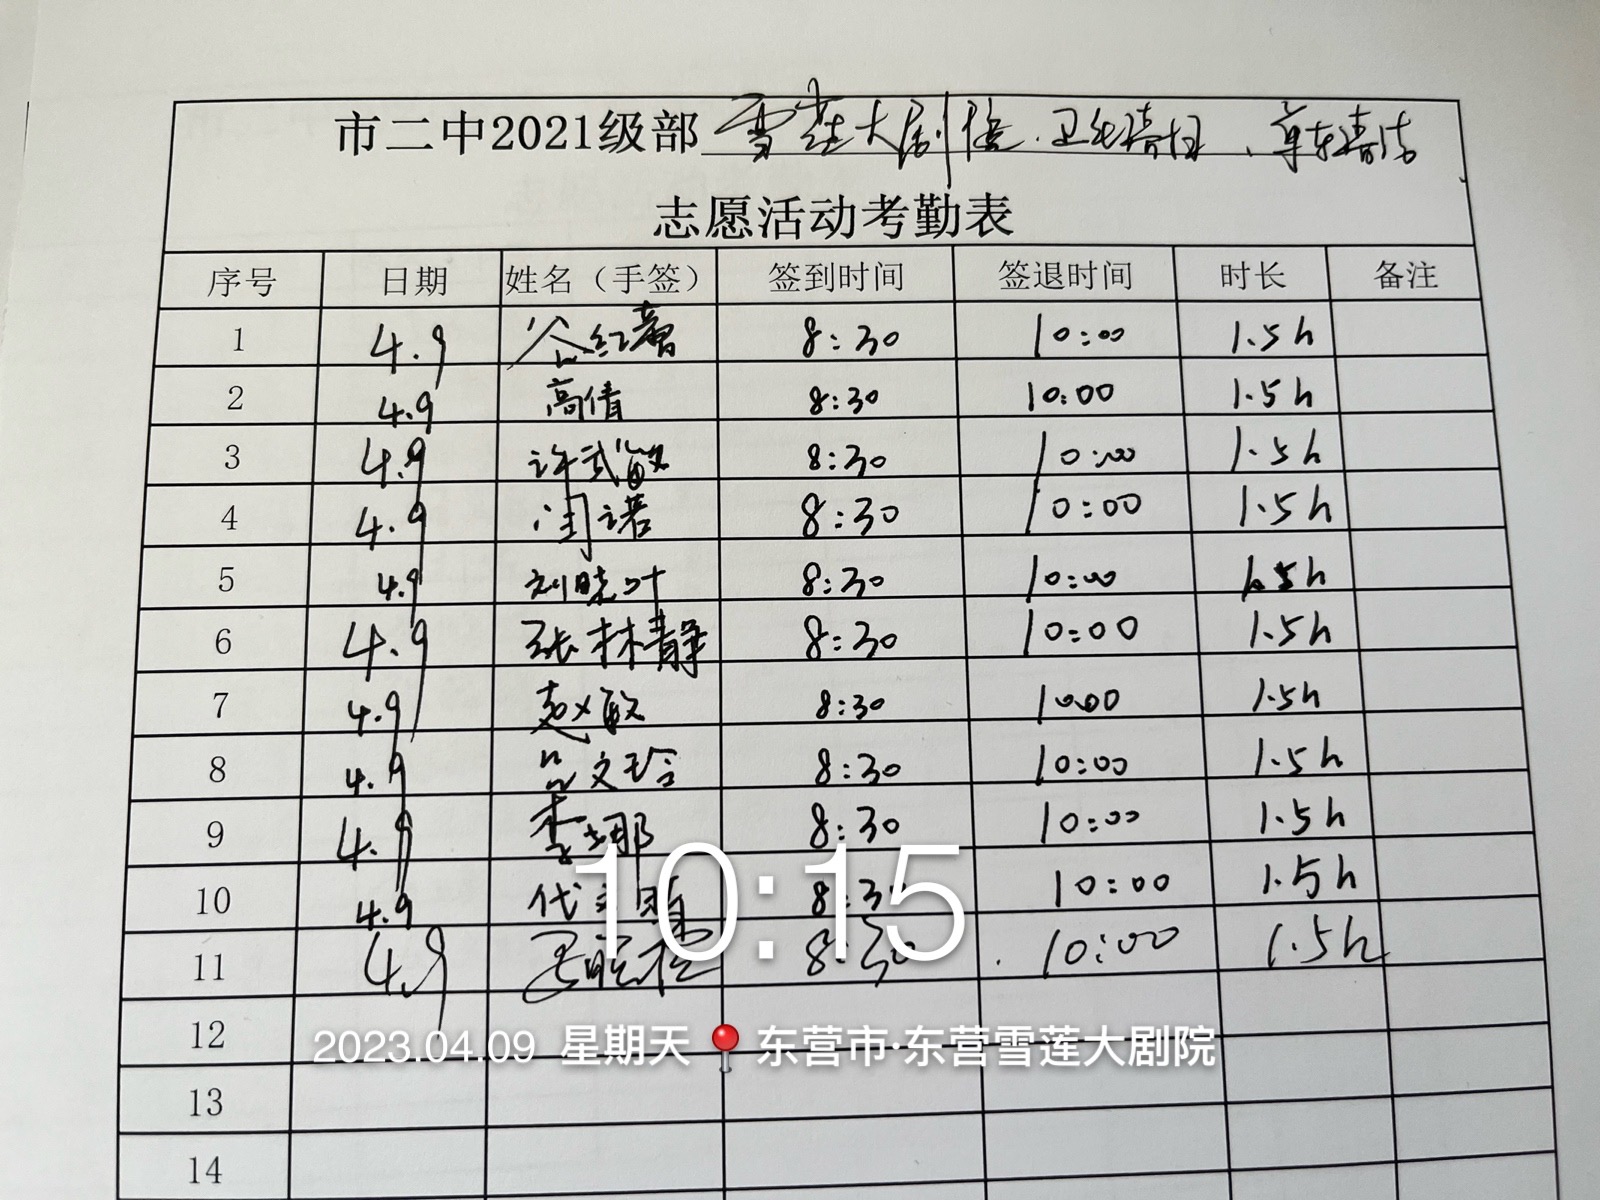 市二中2021级部 雪莲大剧院.卫生清扫、单车清洁
志愿活动考勤表
序号 日期 姓名（手签） 签到时间 签退时间 时长 备注
1 4.9 8:30 10:00 1.5h
2 4.9 高倩 8:30 10:00 1.5h
3 4.9 许武敏 8:30 10:00 1.5h
4 4.9 闫诺 8:30 10:00 1.5h
5 4.9 刘晓叶 8:30 10:00 1.5h
6 4.9 张林静 8:30 10:00 1.5h
7 4.9 赵敏 8:30 10:00 1.5h
8 4.9 吕文玲 8:30 10:00 1.5h
9 4.9 李娜 8:30 10:00 1.5h
10 4.9 8:30 10:00 1.5h
11 4.9 8:30 10:00 1.5h
10:15
12
2023.04.09 星期天 东营市·东营雪莲大剧院
13
14